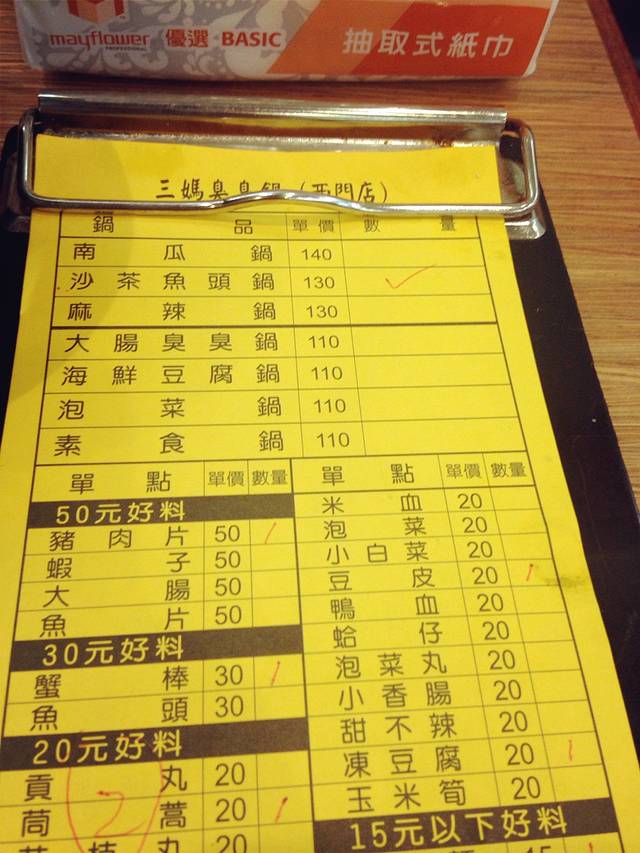 mayflower 優選 BASIC 抽取式紙巾
PROFESSIONAL
三媽臭臭鍋(西門店)
鍋品 單價 數量
南瓜鍋 140
沙茶魚頭鍋 130 ✓
麻辣鍋 130
大腸臭臭鍋 110
海鮮豆腐鍋 110
泡菜鍋 110
素食鍋 110
單點 單價 數量
50元好料
豬肉片 50 1
蝦子 50
大腸 50
魚片 50
30元好料
蟹棒 30 1
魚頭 30
20元好料
貢丸 20
茼蒿 20 1
2
棒丸 20
單點 單價 數量
米血 20
泡菜 20
小白菜 20
豆皮 20 1
鴨血 20
蛤仔 20
泡菜丸 20
小香腸 20
甜不辣 20
凍豆腐 20 1
玉米筍 20
15元以下好料
15